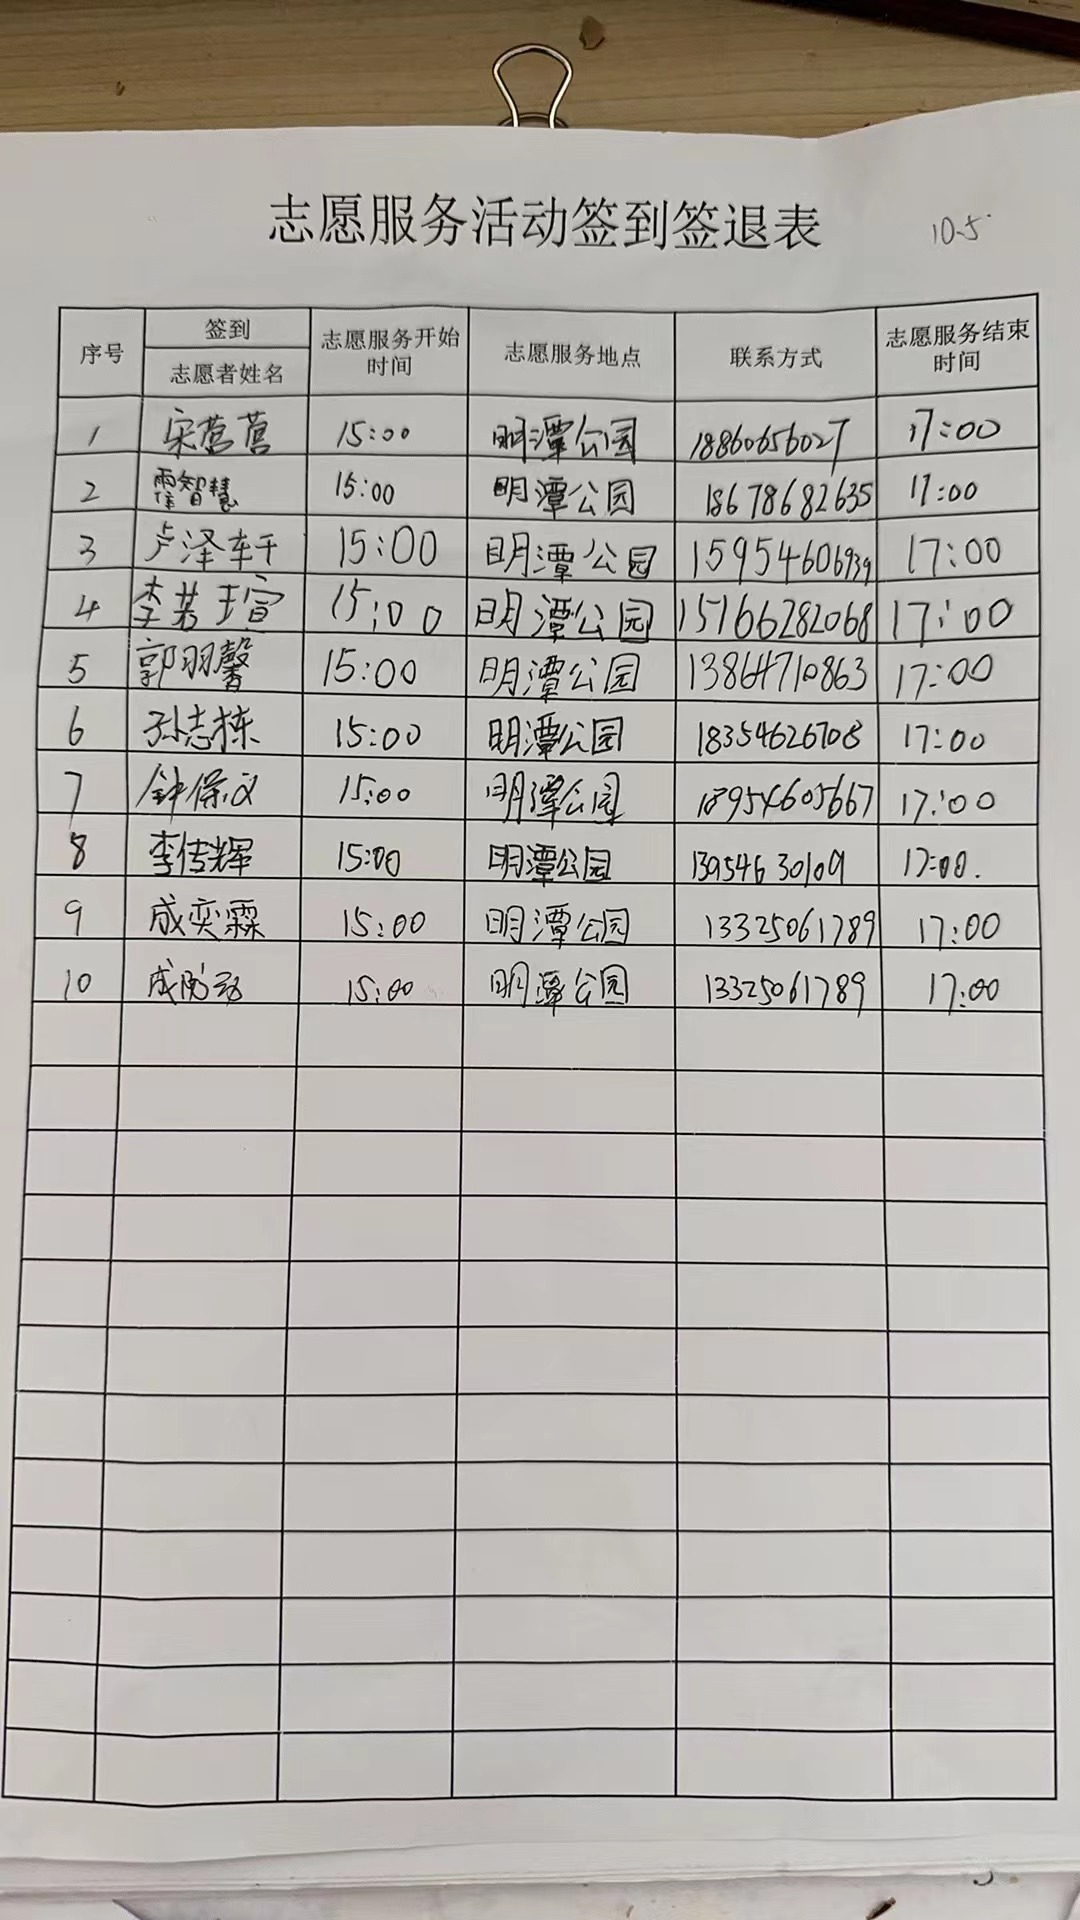 志愿服务活动签到签退表 10.5
序号 签到 志愿者姓名 志愿服务开始时间 志愿服务地点 联系方式 志愿服务结束时间
1 宋营营 15:00 明潭公园 18860656027 17:00
2 智慧 15:00 明潭公园 18678682635 17:00
3 卢泽轩 15:00 明潭公园 15954606939 17:00
4 李若瑄 15:00 明潭公园 15166282068 17:00
5 郭羽馨 15:00 明潭公园 13864710863 17:00
6 孙志栋 15:00 明潭公园 18354626708 17:00
7 钟保义 15:00 明潭公园 18954605667 17:00
8 李传辉 15:00 明潭公园 13954630109 17:00.
9 成奕霖 15:00 明潭公园 13325061789 17:00
10 15:00 明潭公园 13325061789 17:00